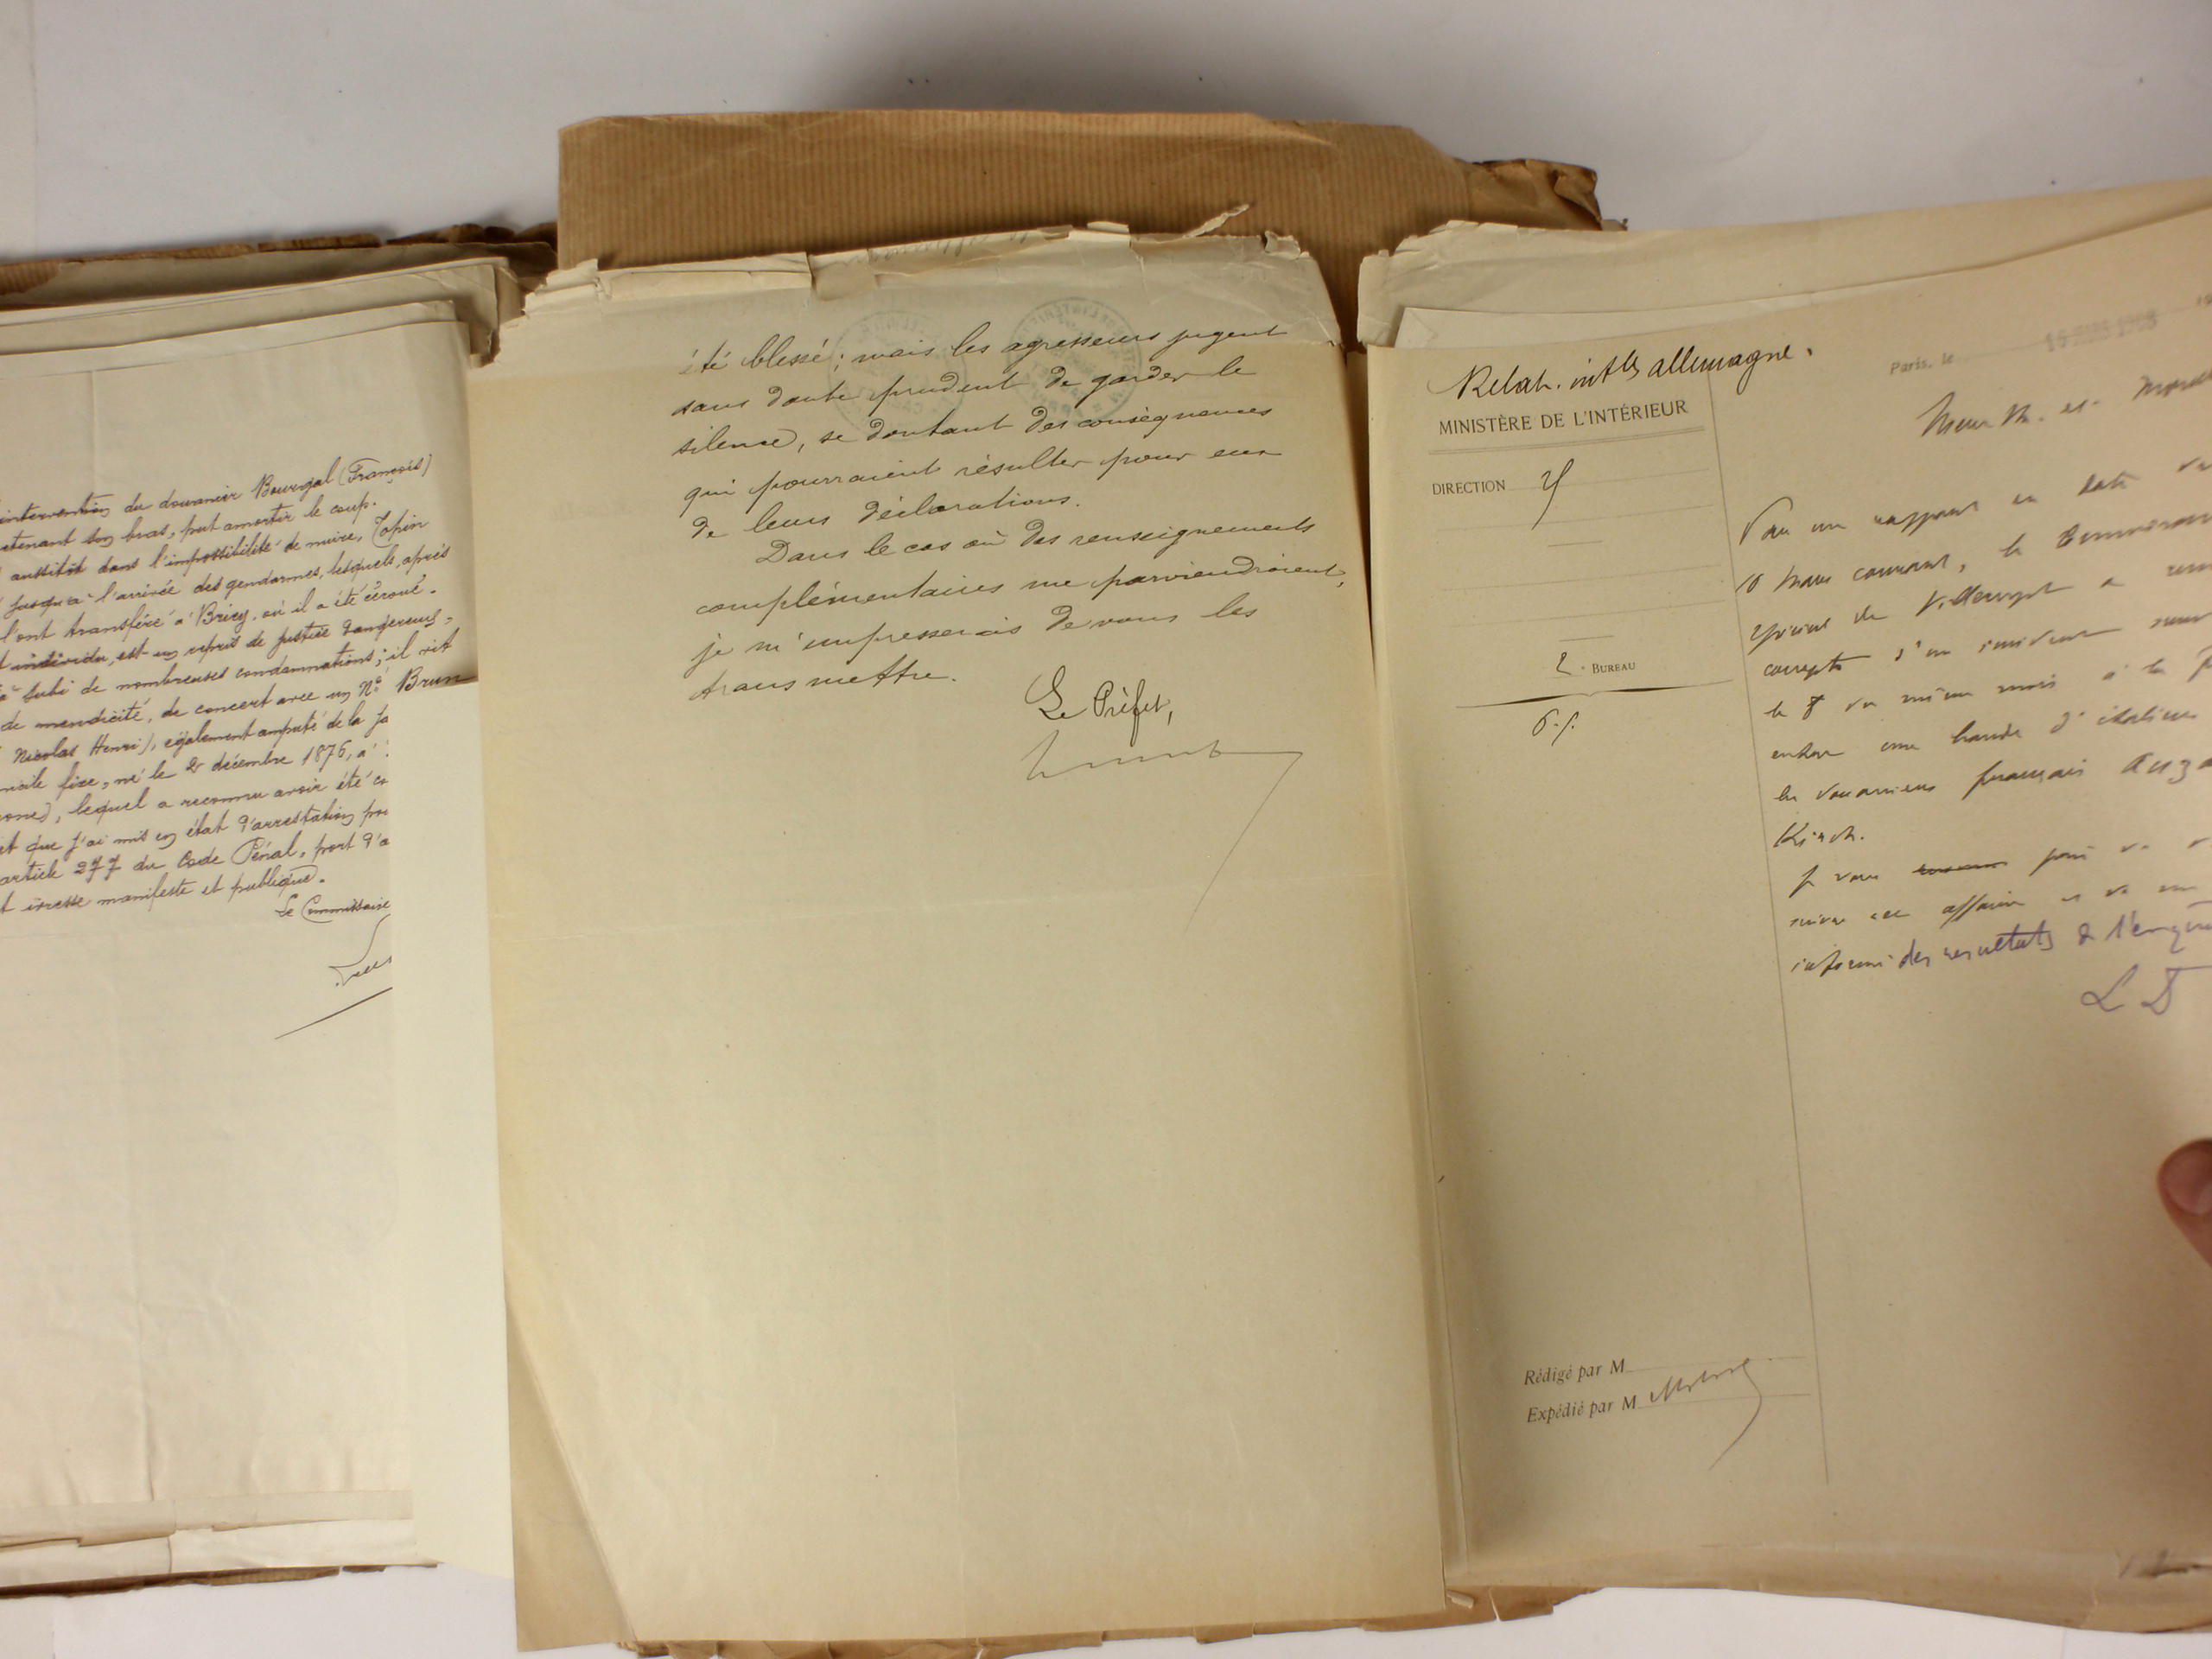 intervention du douanier Bourgal (François)
retenant son bras, put amortir le coup.
aussitôt dans l'impossibilité de nuire, Topin
jusqu'à l'arrivée des gendarmes, lesquels, après
l'ont transféré à Briey, où il a été écroué.
individu, est un repris de justice dangereux,
subi de nombreuses condamnations; il vit
de mendicité, de concert avec un Né Brun
Nicolas Henri), également amputé de la ja
fixe, né le 2 décembre 1876, à
lequel a reconnu avoir été
et que j'ai mis en état d'arrestation pou
article 277 du Code Pénal, port d'a
t ivresse manifeste et publique.
Le Commissaire
été blessé; mais les agresseurs jugent
sans doute prudent de garder le
silence, se doutant des conséquences
qui pourraient résulter pour eux
de leurs déclarations.
Dans le cas où des renseignements
complémentaires me parviendraient,
je m'empresserais de vous les
transmettre.
Le Préfet,
Relat. intles allemagne.
MINISTÈRE DE L'INTÉRIEUR
DIRECTION
2e BUREAU
Rédigé par M
Expédié par M
Paris, le
Meurth. et Mosel
Par un rapport en date du
10 mars courant, le Commissai
spécial de Villerupt a ren
compte d'un incident surv
le 8 du même mois à la
entre une bande d'italiens
les douaniers français
Kirch.
Je vous prie de
suivre cette affaire et de me
informé des résultats de l'enquê
L D